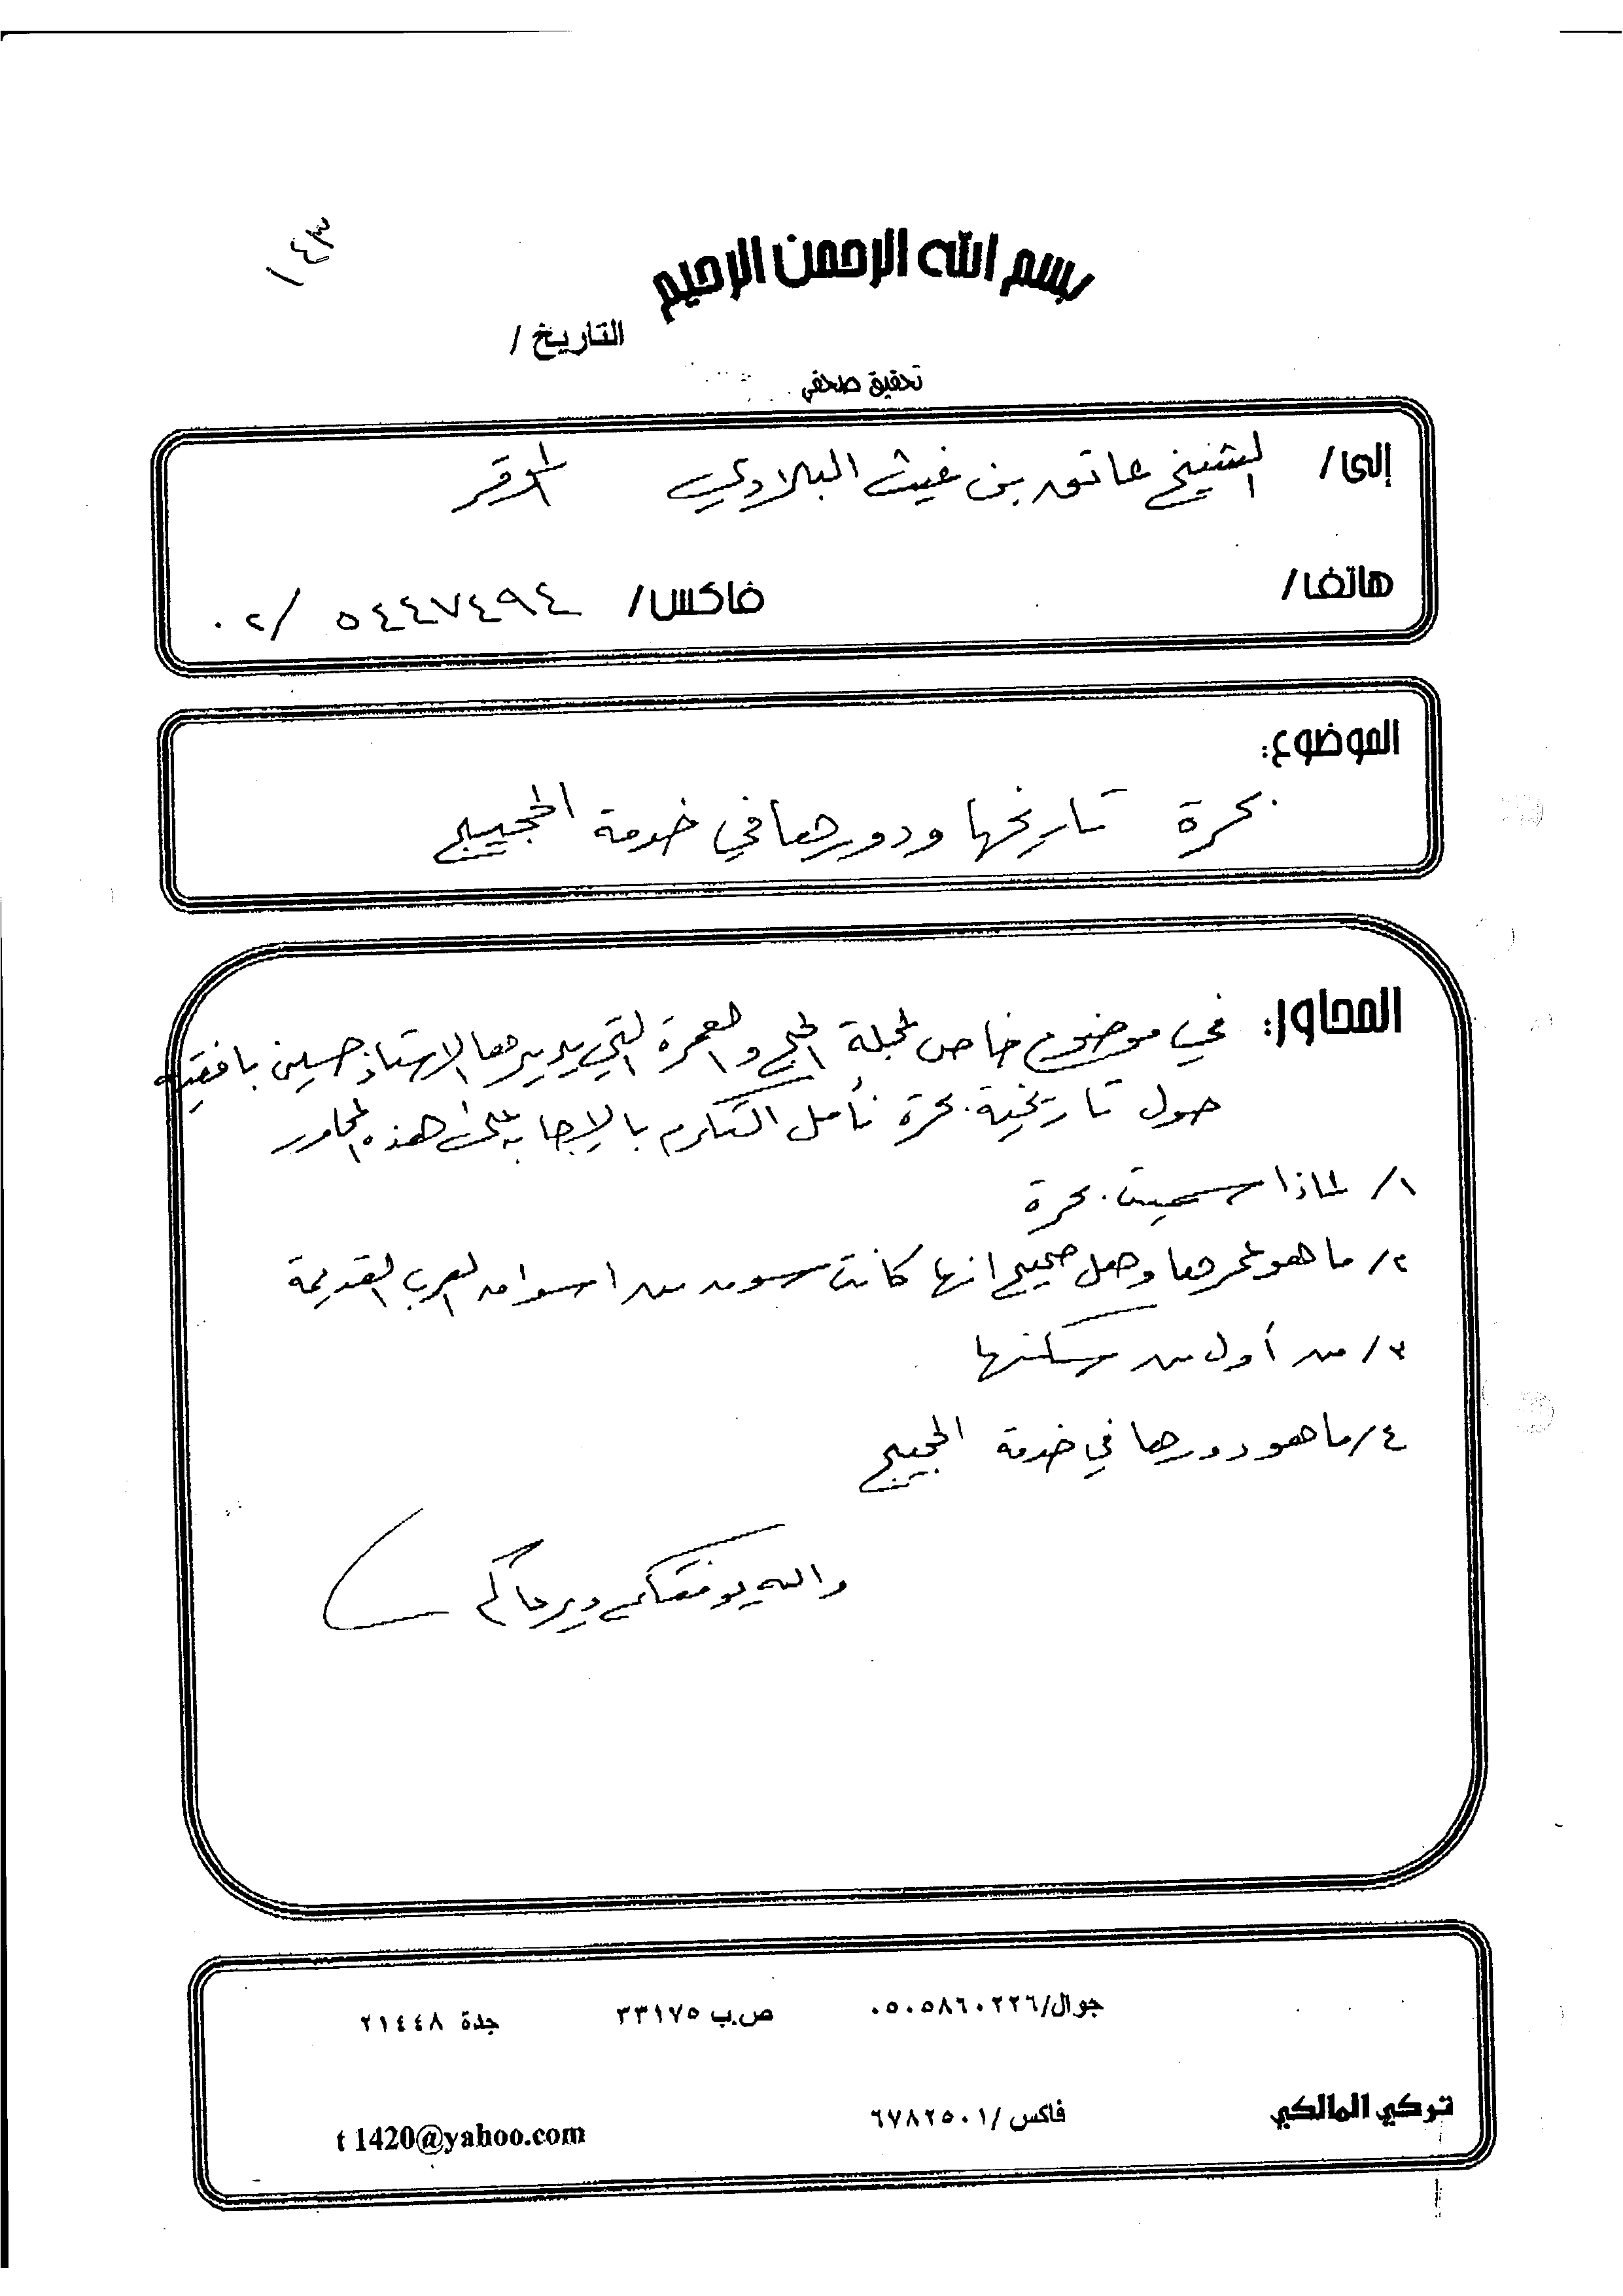 ١٤٣
بسم الله الرحمن الرحيم
التاريخ /
تحقيق صحفي
إلى / الشيخ عاتق بن غيث البلادي الموقر
هاتف/ فاكس/ ٥٤٤٧٤٩٤ /٠٢
الموضوع:
بحرة تاريخها ودورها في خدمة الحجيج
المحاور: في موضوع خاص لمجلة الحج والعمرة التي يديرها الاستاذ حسين بافقيه
حول تاريخية بحرة نأمل التكرم بالإجابة على هذه المحاور
١/ لماذا سميت بحرة
٢/ ما هو عمرها وهل صحيح انها كانت سوق من اسواق العرب القديمة
٣/ من أول من سكنها
٤/ ما هو دورها في خدمة الحجيج
والله يوفقكم ويرعاكم
جوال/٠٥٠٥٨٦٠٢٢٦ ص.ب ٣٣١٧٥ جدة ٢١٤٤٨
تركي المالكي فاكس /٦٧٨٢٥٠١ t 1420@yahoo.com